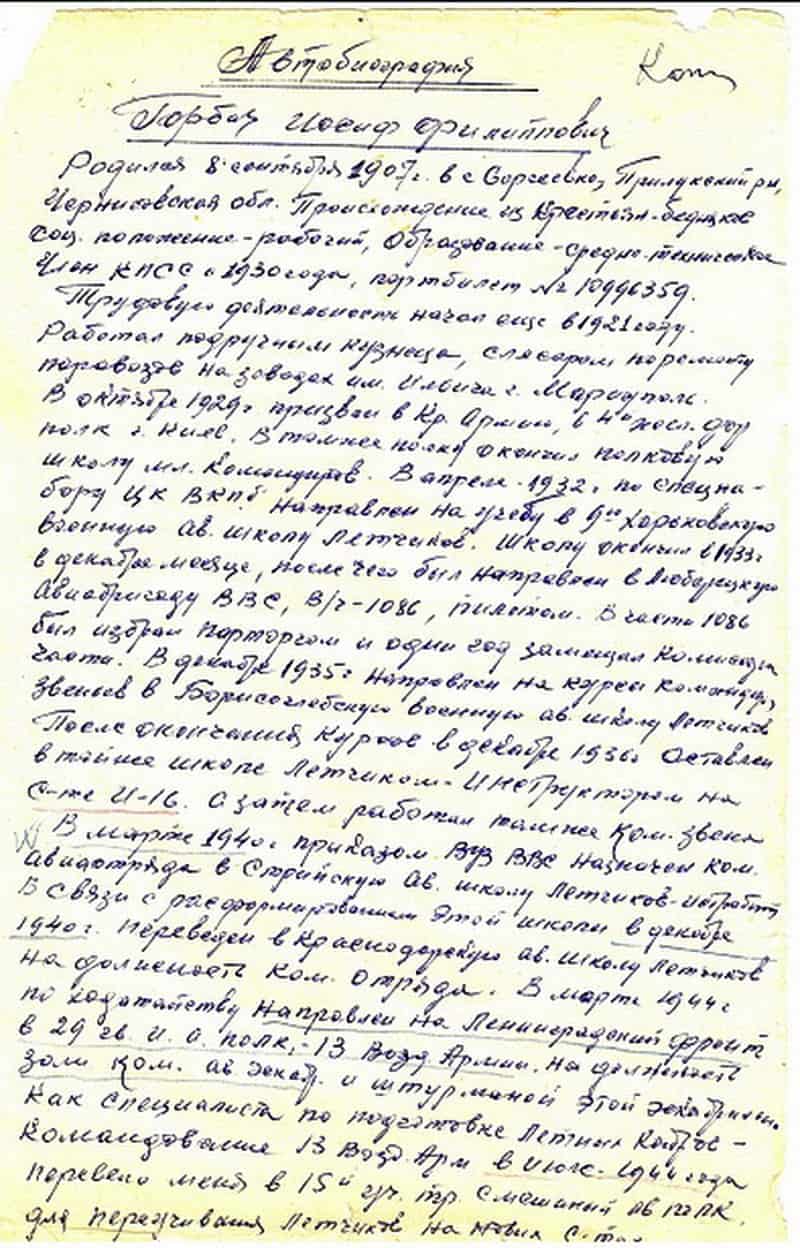 Автобиография
Копия
Горбач Иосиф Филиппович
Родился 8 сентября 1907г. в с Сергеевка, Прилукский рн,
Черниговская обл. Происхождение из крестьян-бедняков
Соц. положение-рабочий, Образование-средне-техническое
Член КПСС с 1930 года, партбилет № 10996359.
Трудовую деятельность начал еще в 1921 году.
Работал подручным кузнеца, слесарем по ремонту
паровозов на заводах им. Ильича г. Мариуполь.
В октябре 1929г призван в Кр. Армию, в 4й
полк г. Киев. В том же полку окончил полковую
школу мл. Командиров. В апреле 1932г по спецна-
бору ЦК ВКПб направлен на учебу в 9ю Харьковскую
военную ав. школу Летчиков. Школу окончил в 1933г
в декабре месяце, после чего был направлен в Люберецкую
Авиабригаду ВВС, В/ч-1086, пилотом. В части 1086
был избран парторгом и один год замещал Комиссара
части. В декабре 1935г направлен на курсы командиров
звеньев в Борисоглебскую военную ав. школу Летчиков
После окончания курсов в декабре 1936г оставлен
в той же школе Летчиком-Инструктором на
с-те И-16. а затем работал там же Ком. звена
В марте 1940г приказом ВУЗ ВВС назначен Ком.
Авиаотряда в Стрийскую Ав. школу Летчиков-истребит.
В связи с расформированием этой школы в декабре
1940г. переведен в Краснодарскую ав. школу Летчиков
на должность Ком. отряда. В марте 1944г
по ходатайству направлен на Ленинградский фронт
в 29 гв. И. А. полк,-13 Возд Армии. на должность
зам Ком. ав эскадр. и штурманом этой эскадрильи.
Как специалиста по подготовке Летных Кадров-
Командование 13 Возд. Арм в июле 1944 года
перевело меня в 15й уч. тр. смешаный ав полк,
для переучивания Летчиков на новых